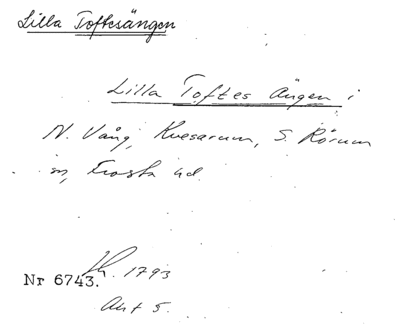 Lilla Toftesängen
Lilla Toftes Ängen i
N. Vång, Kvesarum, S. Rörum
sn, Frosta hd.
Nr 6743. Th. 1793
Akt 5.